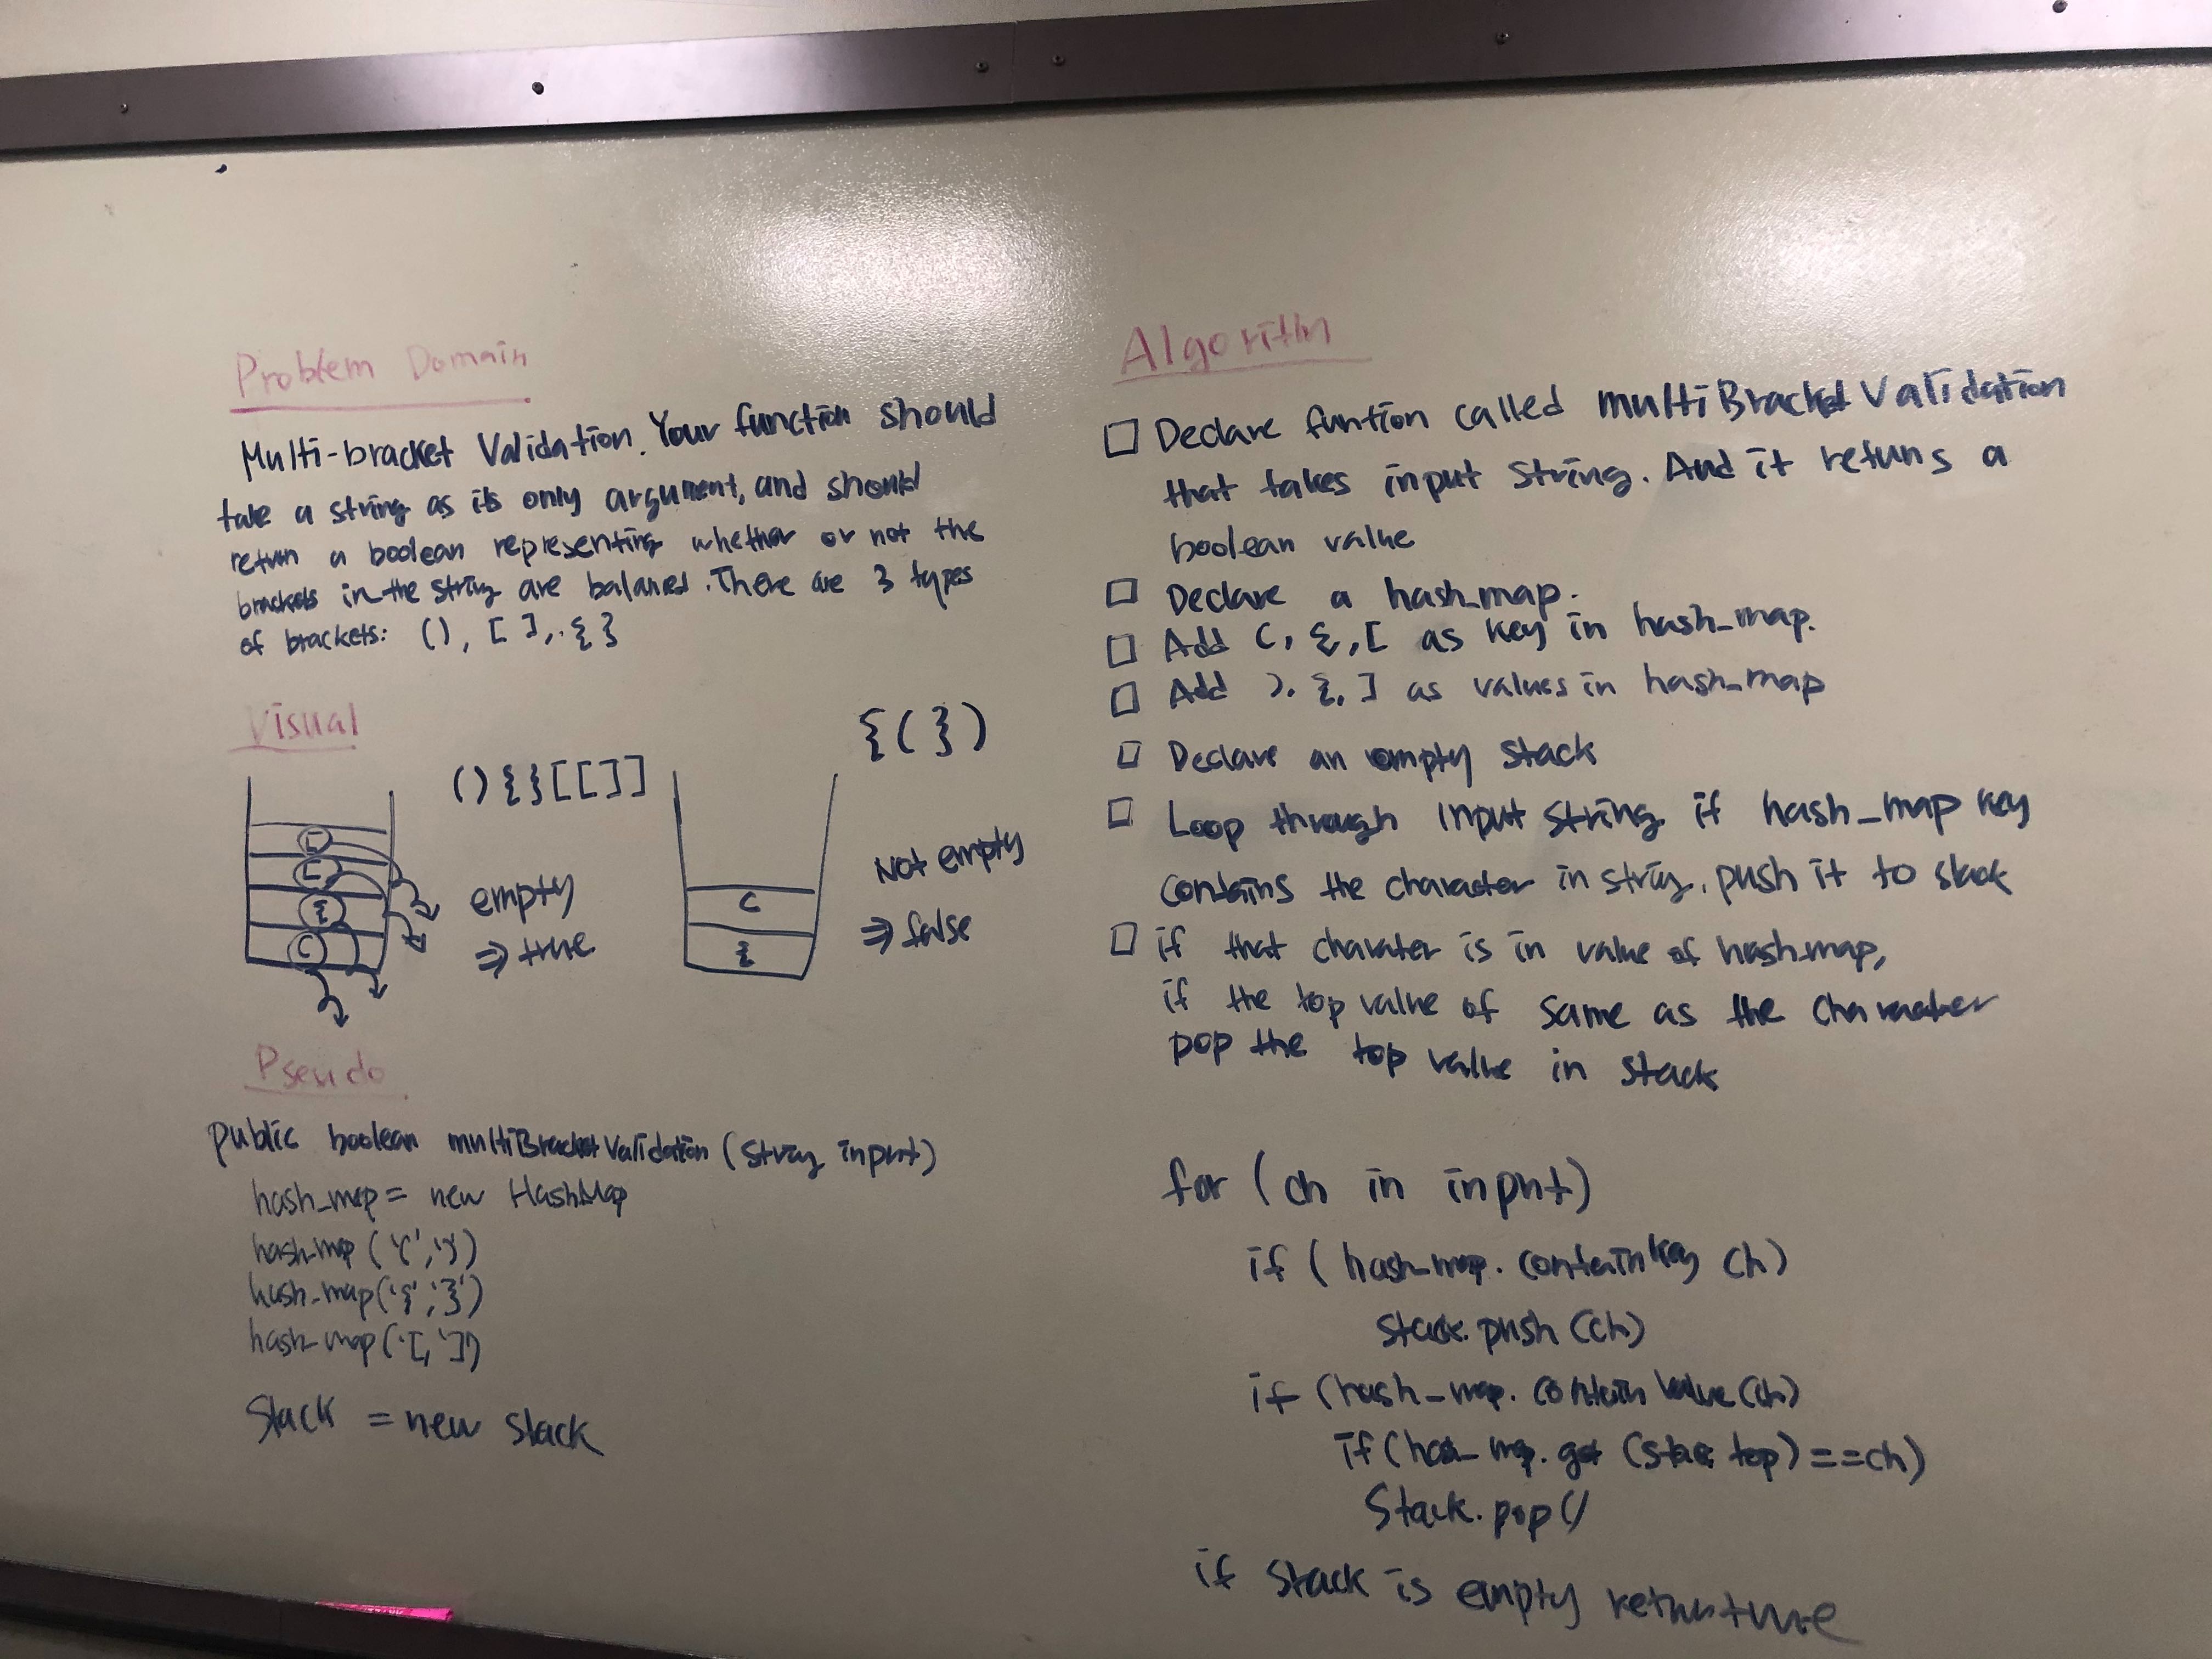 Problem Domain
Multi-bracket Validation. Your function should
take a string as its only argument, and should
return a boolean representing whether or not the
brackets in the string are balanced. There are 3 types
of brackets: (), [ ], { }
Visual
(){}[[]]
[
[
{
(
empty
⇒ true
{(})
(
{
Not empty
⇒ false
Pseudo
public boolean multiBracketValidation (String input)
hash_map = new HashMap
hash_map ('(',')')
hash_map('{','}')
hash_map('[,']')
Stack = new stack
Algorithm
□ Declare funtion called multiBracketValidation
that takes input string. And it retuns a
boolean value
□ Declare a hash_map.
□ Add (, {, [ as key in hash_map.
□ Add ), {, ] as values in hash_map
□ Declare an empty stack
□ Loop through input string if hash_map key
contains the character in string, push it to stack
□ if that charater is in value of hashmap,
if the top value of same as the character
pop the top value in stack
for (ch in input)
if ( hash_map. containkey ch)
stack. push (ch)
if (hash_map. contain value (ch)
if (hash_map. get (stack top) ==ch)
Stack. pop()
if stack is empty return true